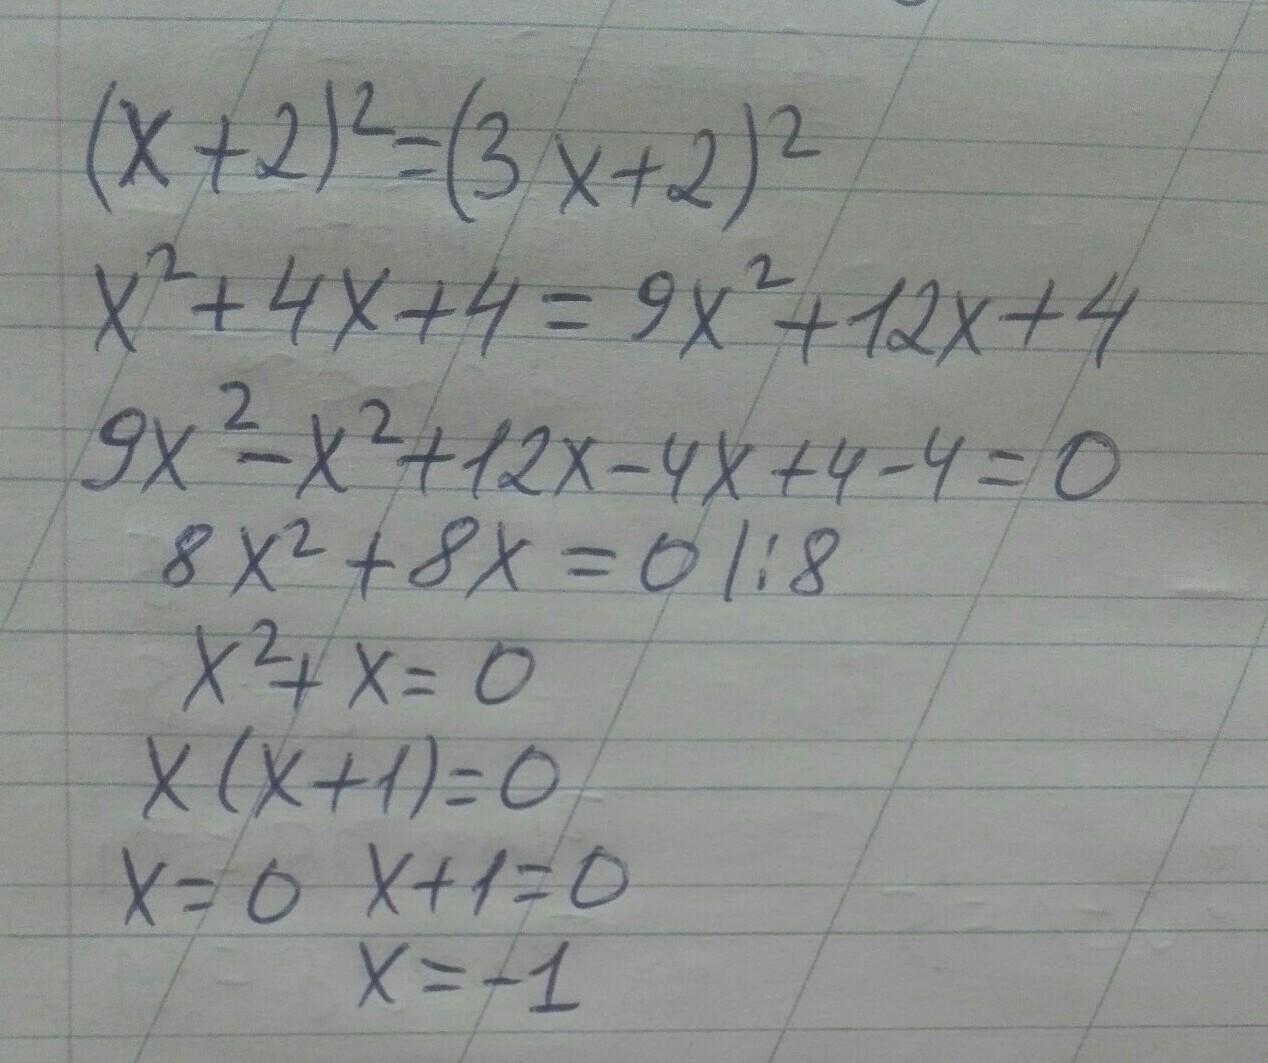 (x+2)²=(3x+2)²
x²+4x+4=9x²+12x+4
9x²-x²+12x-4x+4-4=0
8x²+8x=0 |:8
x²+x=0
x(x+1)=0
x=0 x+1=0
x=-1